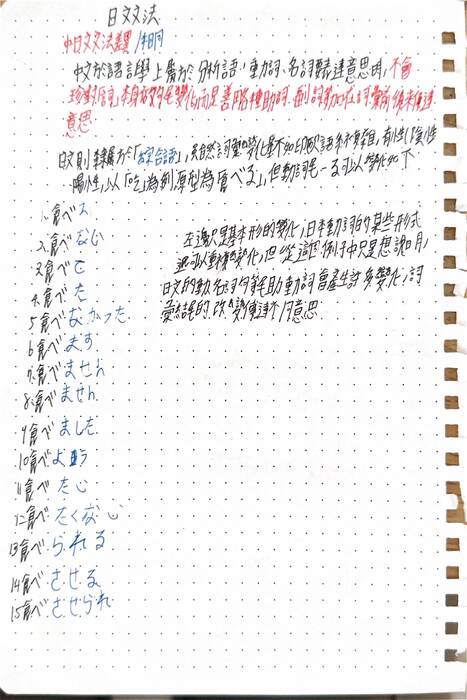 日文文法
中日文文法差異/相同
中文於語言學上屬於分析語,動詞、名詞要表達意思時,不會
詞本身的變化而是善略種助詞、副詞加在詞彙前後來傳達
意思
日文則隸屬於「綜合語」,雖然詞變化量不如印歐語系有陰性
陽性,以「吃」為例,原型為「食べる」,但動詞尾-る可以變化如下
1.食べる
2.食べない
3.食べて
4.食べた
5.食べなかった
6.食べます
7.食べません
8.食べません
9.食べました
10.食べよう
11.食べたい
12.食べたくない
13.食べられる
14.食べさせる
15.食べさせられ
左邊只是基本形的變化,日本動詞的某些形式
還可以動變化,但從這個例子中只是想說明,
日文的動名詞助動詞會產生許多變化,詞
彙結尾的改變傳達不同意思